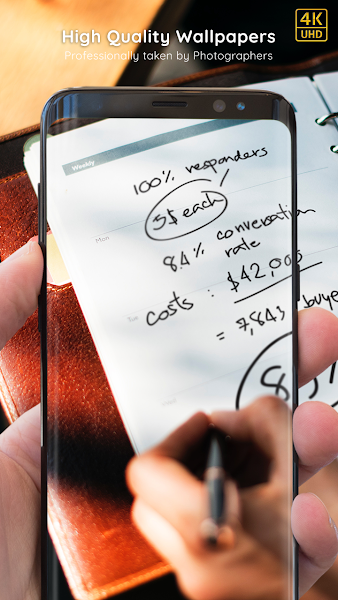 High Quality Wallpapers
Professionally taken by Photographers
4K
UHD
Weekly
100% responders
5$ each
Mon
8.4% conversation
rate
$42,000
costs :
Tue
= 7,843 buye